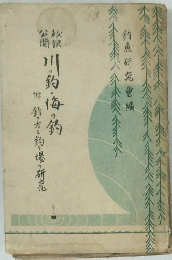 釣魚研究會編
秘訣公開
川の釣・海の釣
附 釣り方と釣り場の研究